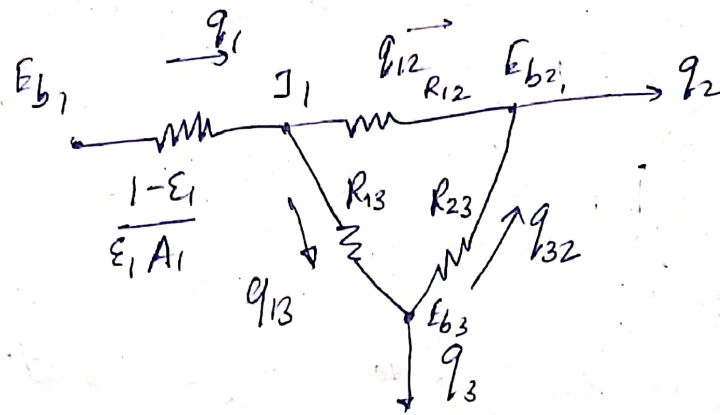 q₁
E_b₁
J₁
q₁₂
R₁₂
E_b₂
q₂
1-ε₁
ε₁ A₁
R₁₃
R₂₃
q₃₂
q₁₃
E_b₃
q₃